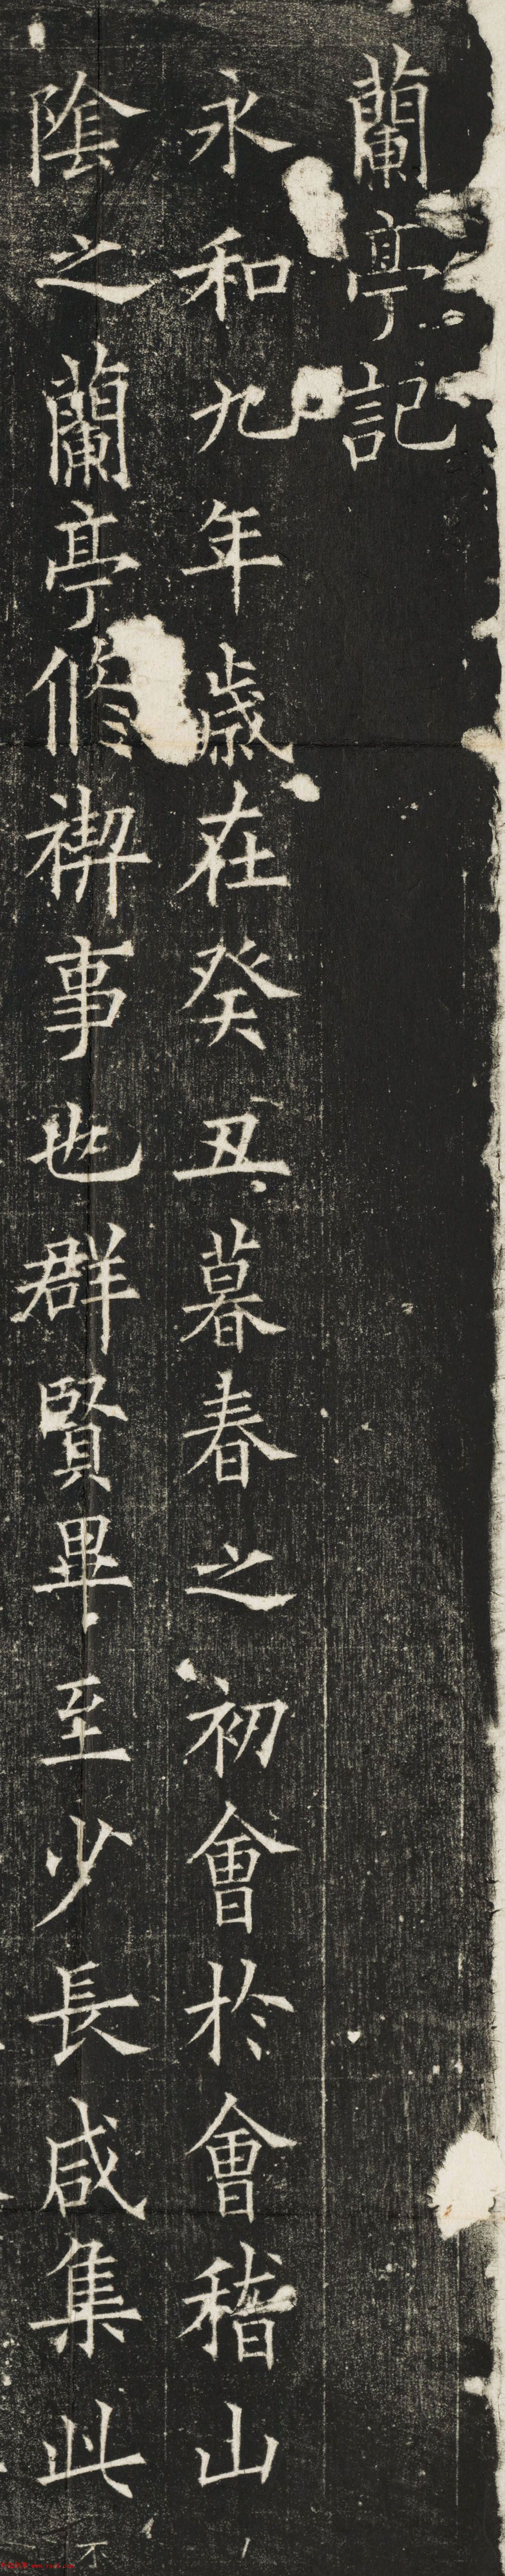 蘭亭記
永和九年歲在癸丑暮春之初會於會稽山
陰之蘭亭修禊事也群賢畢至少長咸集此